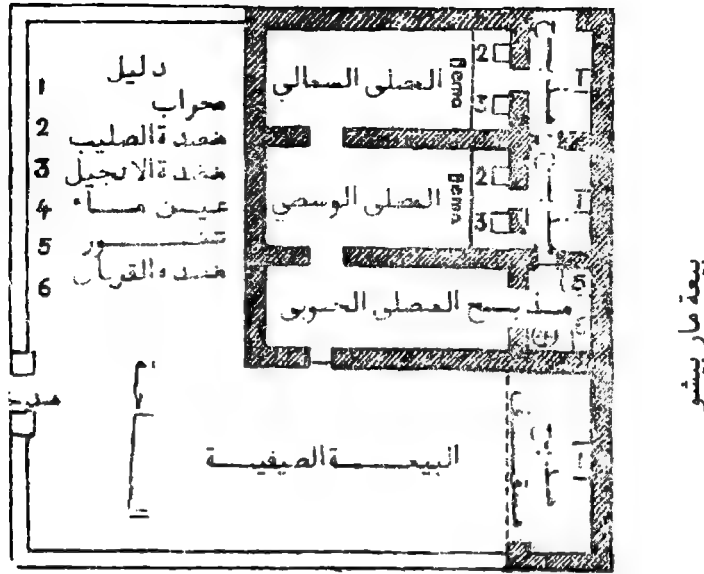 دليل
1 محراب
2 منضدة الصليب
3 منضدة الانجيل
4 عين مــاء
5 تنــور
6 منضدة القربان
المصلى الشمالي
Bema
2
3
1
المصلى الوسطي
Bema
2
3
1
مذبــح المصلى الجنوبي
5
البيعــــة الصيفيــــة
1
بيعة مار بيشو